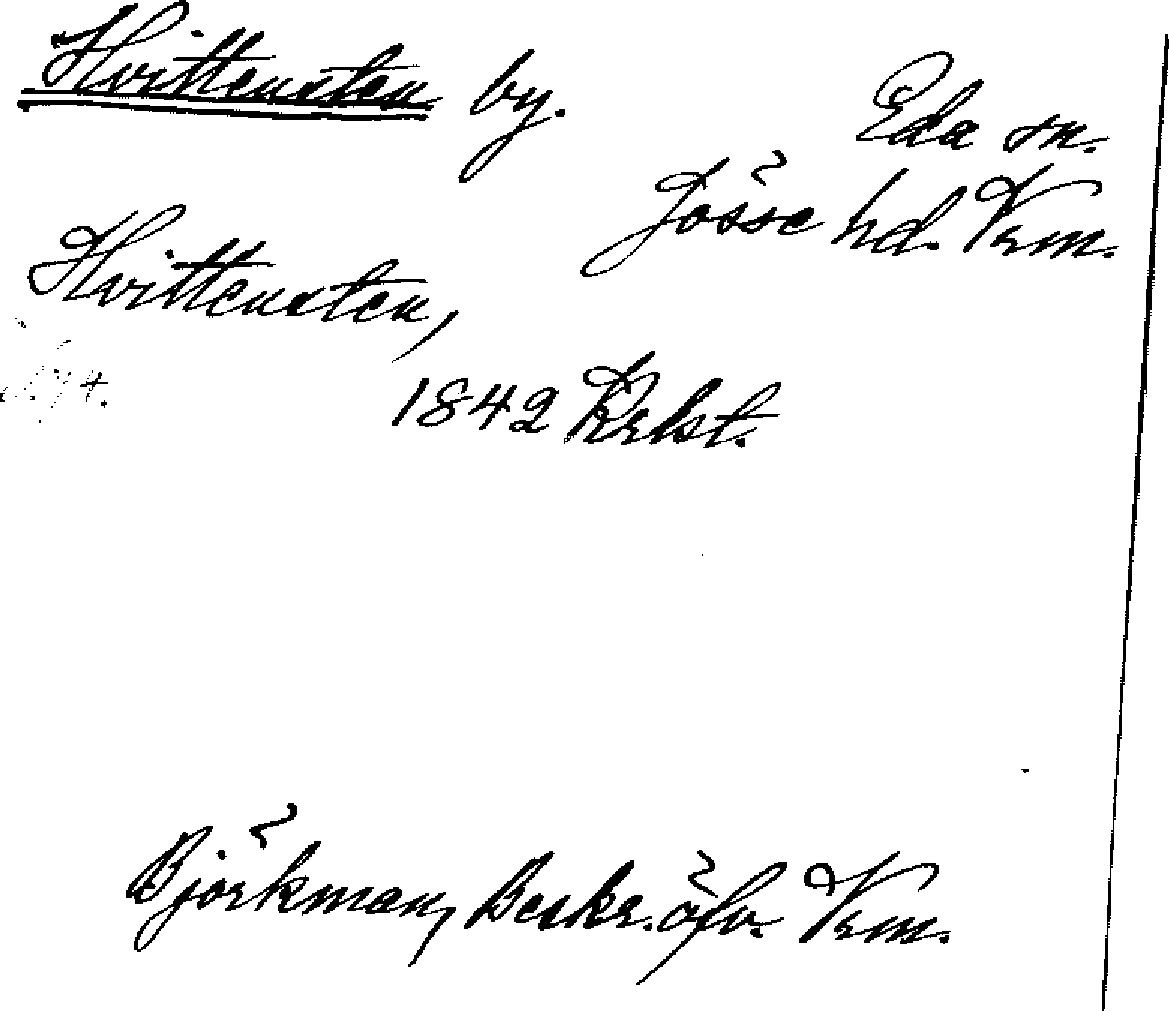 Hvittensten by.
Eda sn.
Jösse hd. Vrm.
Hvittensten,
1842 Krlst.
Björkman, Beskr. öfv. Vrm.